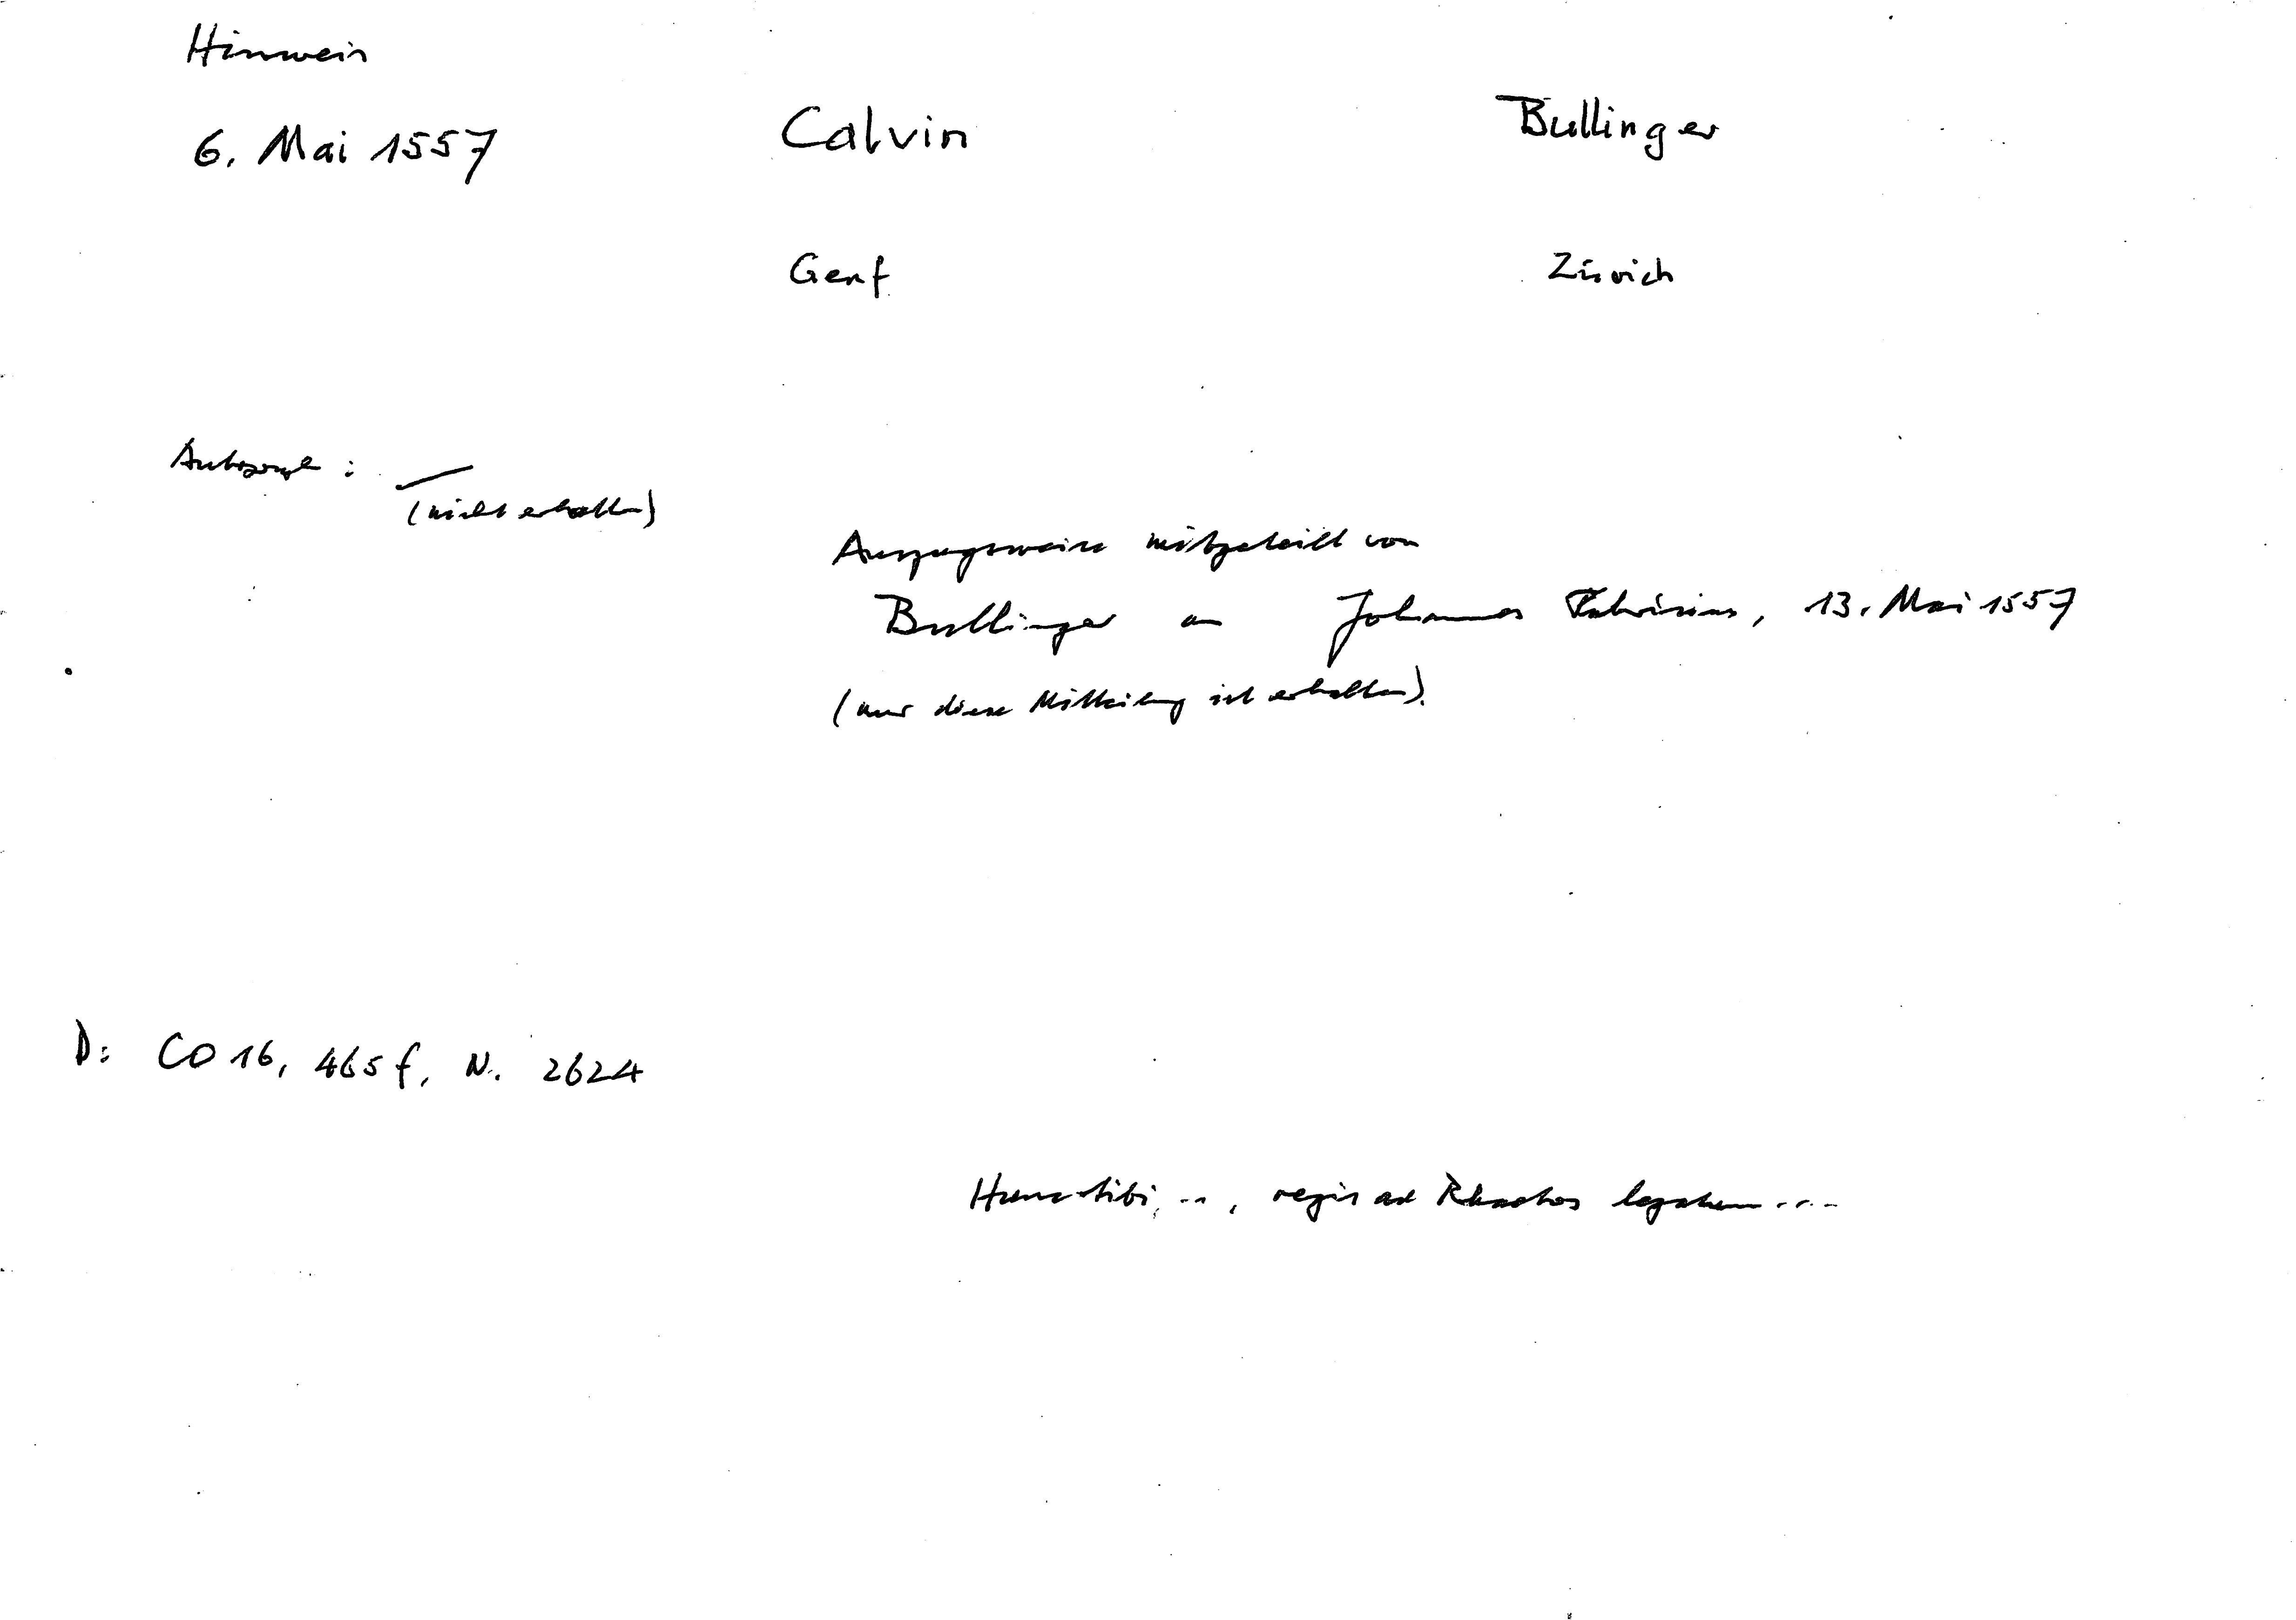 Hinweis
6. Mai 1557 Calvin Bullinger
Genf Zürich
Autograph : —
(nicht erhalten)
Auszugsweise mitgeteilt von
Bullinger an Johannes Fabricius, 13. Mai 1557
(nur diese Mitteilung ist erhalten).
D: CO 16, 465 f, N. 2624
Hunc tibi, .., regis ad Rhaetos legatum ....